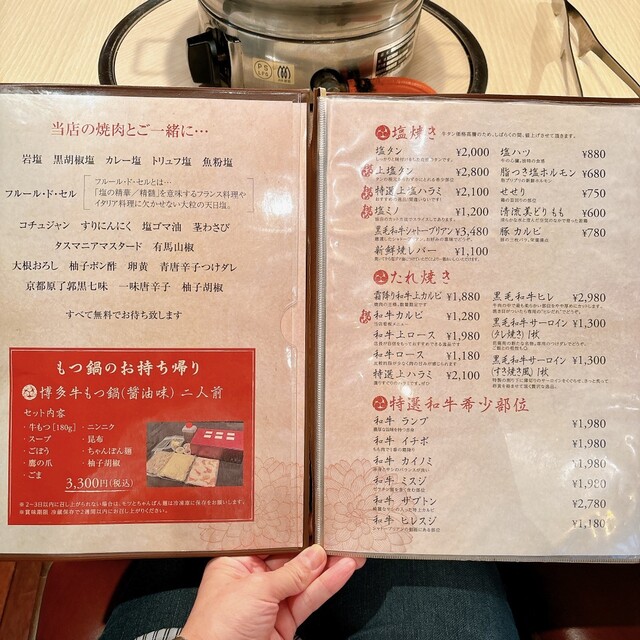 当店の焼肉とご一緒に…
岩塩 黒胡椒塩 カレー塩 トリュフ塩 魚粉塩
フルール・ド・セル
フルール・ド・セルとは…
「塩の精華／精髄」を意味するフランス料理や
イタリア料理に欠かせない大粒の天日塩。
コチュジャン すりにんにく 塩ゴマ油 茎わさび
タスマニアマスタード 有馬山椒
大根おろし 柚子ポン酢 卵黄 青唐辛子つけダレ
京都原了郭黒七味 一味唐辛子 柚子胡椒
すべて無料でお待ち致します
もつ鍋のお持ち帰り
博多牛もつ鍋(醤油味) 二人前
セット内容
・牛もつ[180g] ・ニンニク
・スープ ・昆布
・ごぼう ・ちゃんぽん麺
・鷹の爪 ・柚子胡椒
・ごま
3,300円(税込)
※2〜3日以内に召し上がられない場合は、モツとちゃんぽん麺は冷凍庫に保存をお願いします。
※賞味期限 冷蔵保存で2週間以内にお召し上がりください。
塩焼き
※タン価格高騰のため、しばらくの間、値上げさせて頂きます。
塩タン ¥2,000
上塩タン ¥2,800
特選上塩ハラミ ¥2,100
塩ミノ ¥1,200
黒毛和牛シャトーブリアン ¥3,480
新鮮焼レバー ¥1,100
塩ハツ ¥880
脂つき塩ホルモン ¥680
せせり ¥750
清流美どりもも ¥600
豚カルビ ¥780
たれ焼き
霜降り和牛上カルビ ¥1,880
和牛カルビ ¥1,280
和牛上ロース ¥1,980
和牛ロース ¥1,180
特選上ハラミ ¥2,100
黒毛和牛ヒレ ¥2,980
黒毛和牛サーロイン ¥1,300
(タレ焼き)1枚
黒毛和牛サーロイン ¥1,300
(すき焼き風)1枚
特選和牛希少部位
和牛 ランプ ¥1,980
和牛 イチボ ¥1,980
和牛 カイノミ ¥1,980
和牛 ミスジ ¥1,980
和牛 ザブトン ¥2,780
和牛 ヒレスジ ¥1,180